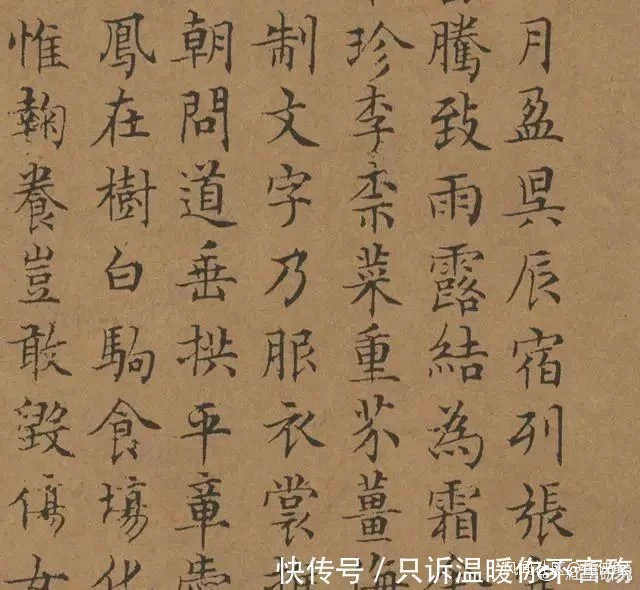 月盈昃辰宿列張
騰致雨露結為霜金
珍李柰菜重芥薑海
制文字乃服衣裳
朝問道垂拱平章
鳳在樹白駒食場化
惟鞠養豈敢毀傷女
快传号／只诉温暖你不言